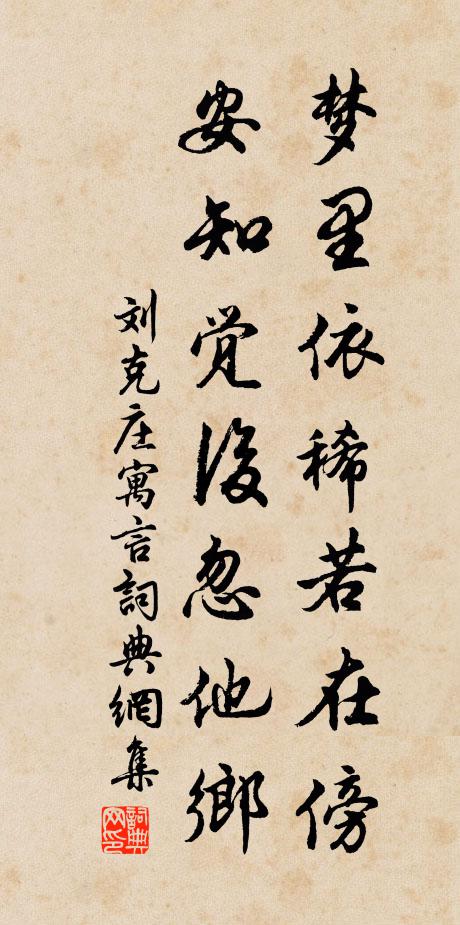 梦里依稀若在傍
安知觉後忽他鄉
刘克庄寓言詞典網集
詞典网印